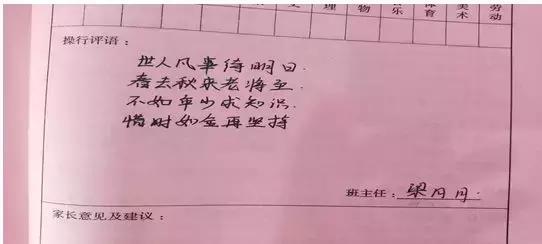 理 物 乐 体育 美术 劳动
操行评语：
世人凡事待明日.
春去秋来老将至
不如年少求知识.
惜时如金再坚持
班主任：梁月月.
家长意见及建议：